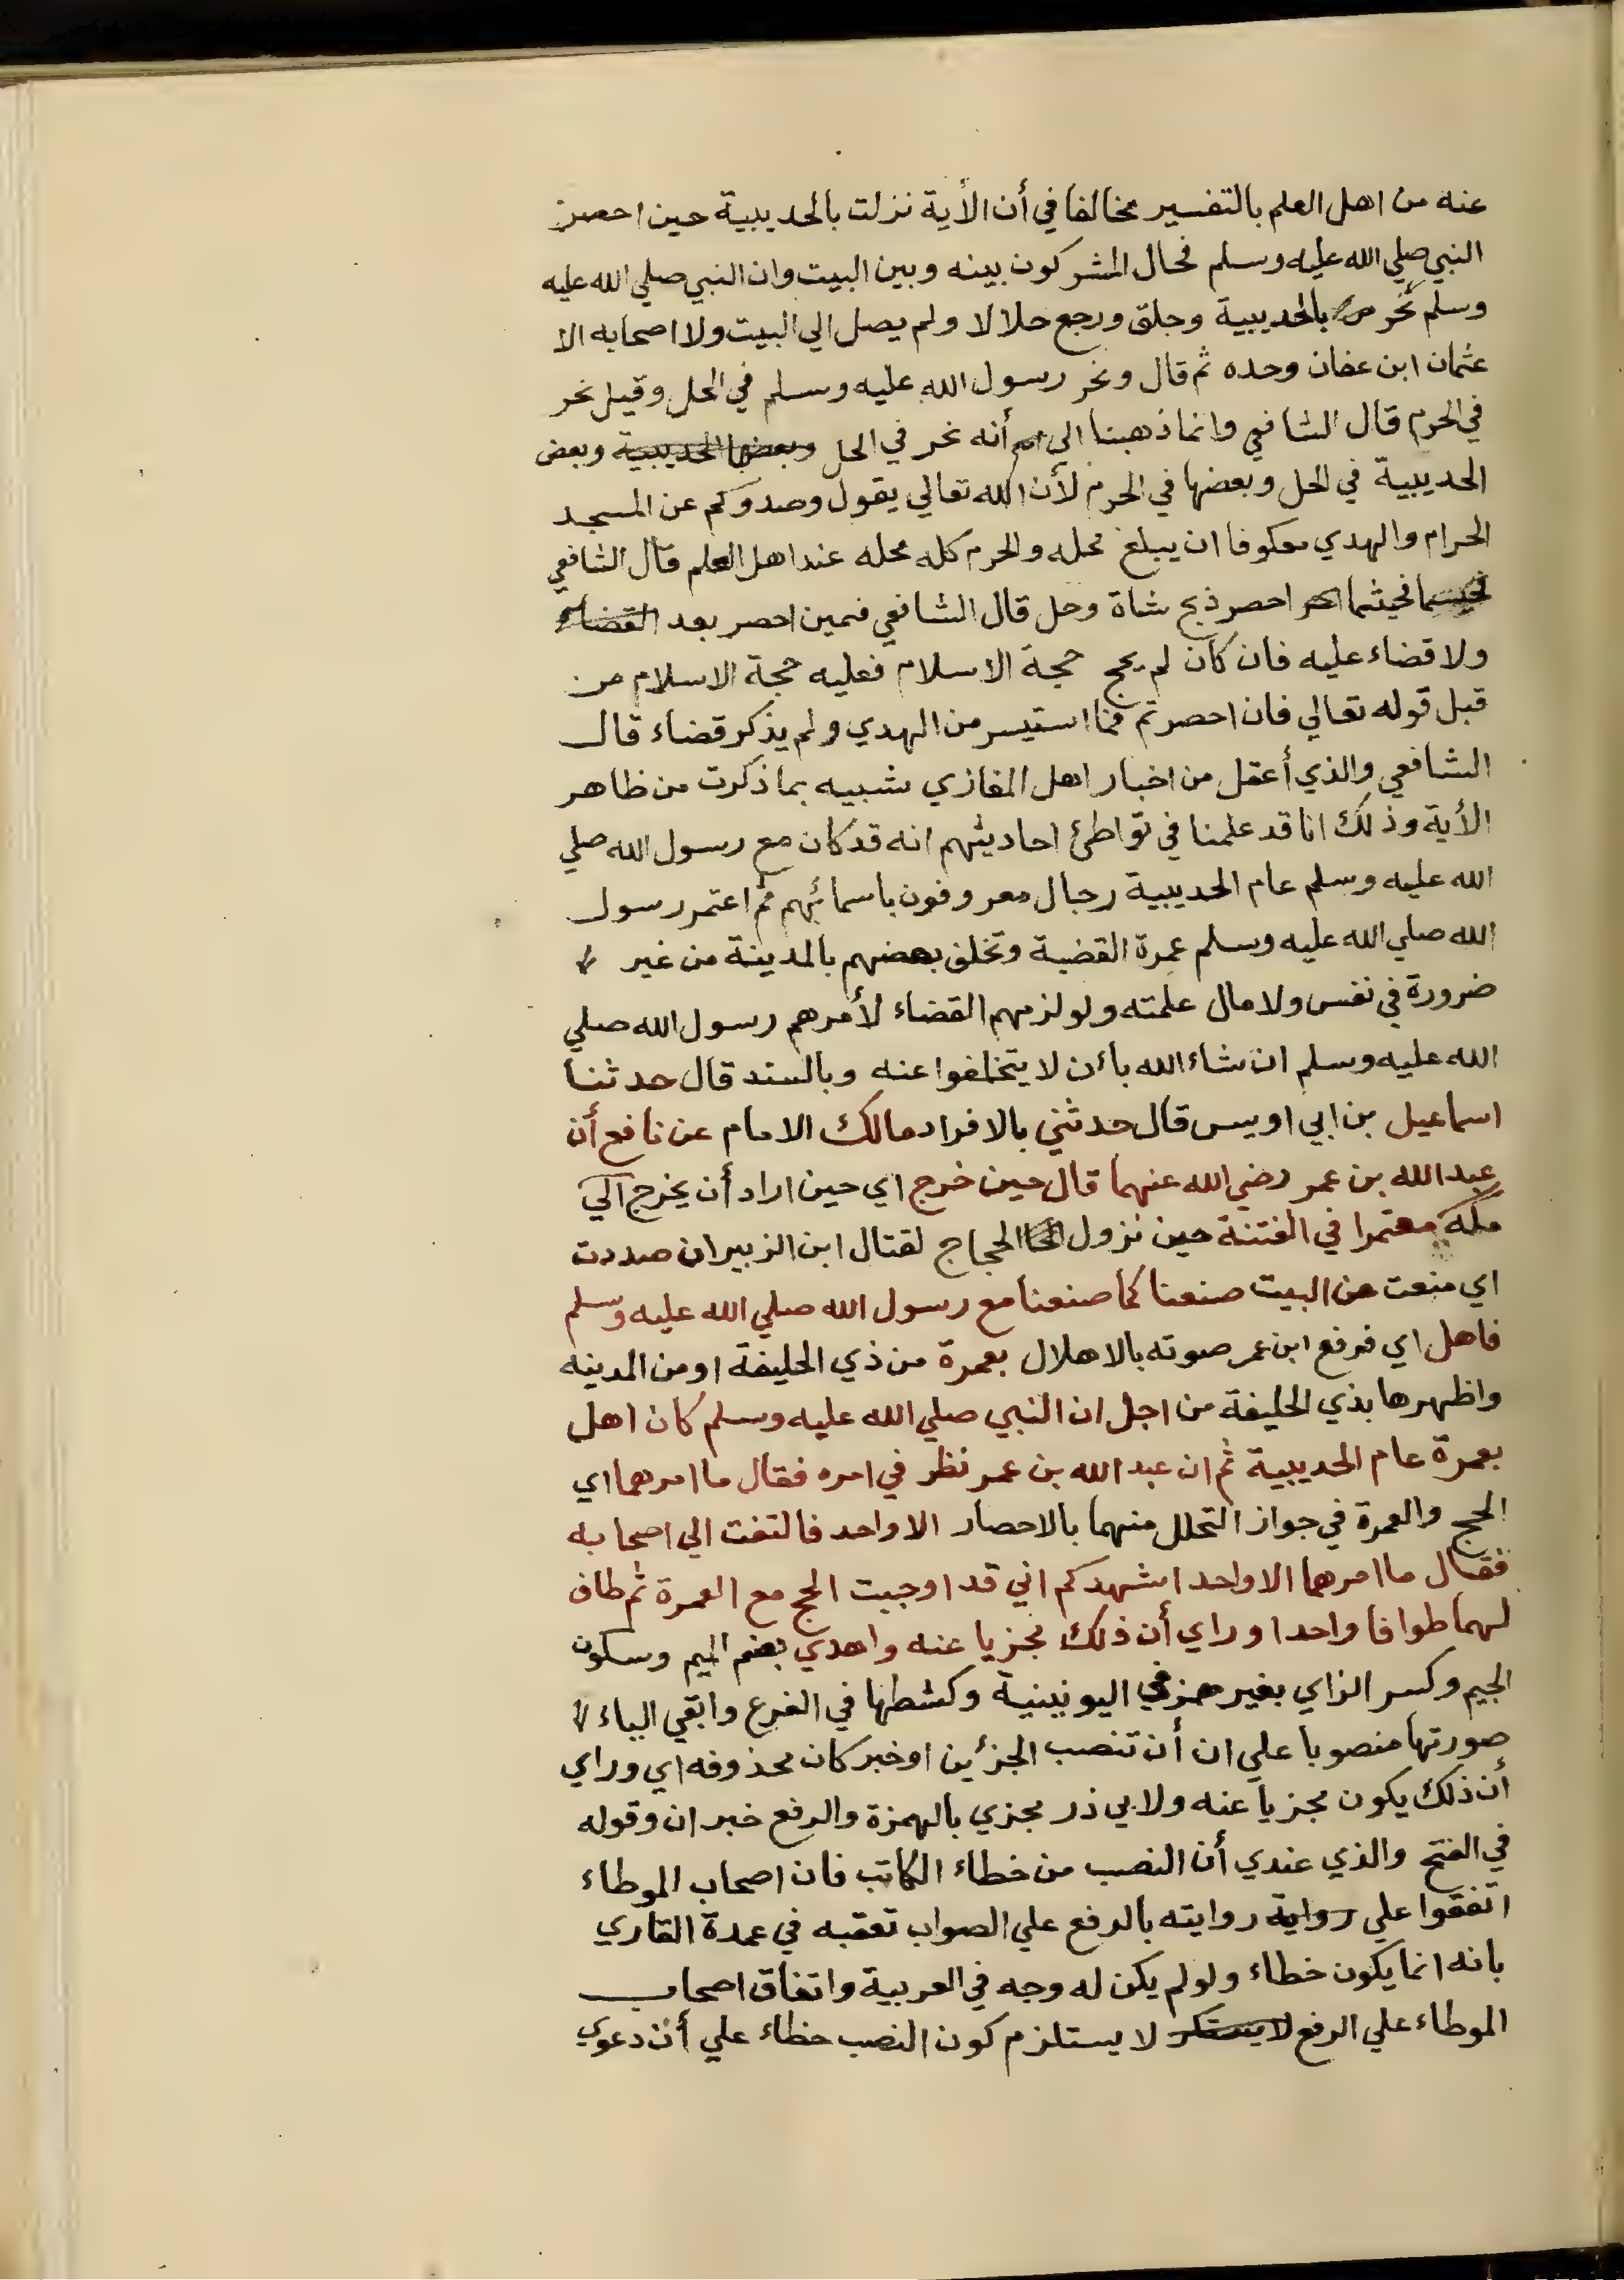 عنه من اهل العلم بالتفسير مخالفا في أن الأية نزلت بالحديبية حين احصر
النبي صلي الله عليه وسلم فحال المشركون بينه وبين البيت وان النبي صلي الله عليه
وسلم نحر بالحديبية وحلق ورجع حلالا ولم يصل الي البيت ولا اصحابه الا
عثمان ابن عفان وحده ثم قال ونحر رسول الله عليه وسلم في الحل وقيل نحر
في الحرم قال الشافعي وانما ذهبنا الي أنه نحر في الحل وبعضها الحديبية وبعض
الحديبية في الحل وبعضها في الحرم لأن الله تعالي يقول وصدوكم عن المسجد
الحرام والهدي معكوفا ان يبلغ محله والحرم كله محله عند اهل العلم قال الشافعي
فحيثما احصر ذبح شاة وحل قال الشافعي فمين احصر بعد القضاء
ولا قضاء عليه فان كان لم يحج حجة الاسلام فعليه حجة الاسلام من
قبل قوله تعالي فان احصرتم فما استيسر من الهدي ولم يذكر قضاء قال
الشافعي والذي أعقل من اخبار اهل المغازي شبيه بما ذكرت من ظاهر
الأية وذلك انا قد علمنا في تواطئ احاديثهم انه قد كان مع رسول الله صلي
الله عليه وسلم عام الحديبية رجال معروفون باسمائهم ثم اعتمر رسول
الله صلي الله عليه وسلم عمرة القضية وتخلف بعضهم بالمدينة من غير
ضرورة في نفس ولا مال علمته ولو لزمهم القضاء لأمرهم رسول الله صلي
الله عليه وسلم ان شاء الله بأن لا يتخلفوا عنه وبالسند قال حدثنا
اسماعيل بن ابي اويس قال حدثني بالافراد مالك الامام عن نافع أن
عبد الله بن عمر رضي الله عنهما قال حين خرج اي حين اراد أن يخرج الي
مكة معتمرا في الفتنة حين نزول الحجاج لقتال ابن الزبير ان صددت
اي منعت عن البيت صنعنا كما صنعنا مع رسول الله صلي الله عليه وسلم
فاهل اي فرفع ابن عمر صوته بالاهلال بعمرة من ذي الحليفة او من المدينه
واظهرها بذي الحليفة من اجل ان النبي صلي الله عليه وسلم كان اهل
بعمرة عام الحديبية ثم ان عبد الله بن عمر نظر في امره فقال ما امرهما اي
الحج والعمرة في جواز التحلل منهما بالاحصار الا واحد فالتفت الي اصحابه
فقال ما امرهما الا واحد اشهدكم اني قد اوجبت الحج مع العمرة ثم طاف
لهما طوافا واحدا وراي أن ذلك مجزيا عنه واهدي بضم الميم وسكون
الجيم وكسر الزاي بغير همز في اليونينية وكشطها في الفرع وابقي الياء
صورتها منصوبا علي ان أن تنصب الجزئين او خبر كان محذوفه اي وراي
أن ذلك يكون مجزيا عنه ولابي ذر مجزي بالهمزة والرفع خبر ان وقوله
في الفتح والذي عندي أن النصب من خطاء الكاتب فان اصحاب الموطاء
اتفقوا علي رواية روايته بالرفع علي الصواب تعقبه في عمدة القاري
بانه انما يكون خطاء ولو لم يكن له وجه في العربية واتفاق اصحاب
الموطاء علي الرفع لا يستلزم كون النصب خطاء علي أن دعوي